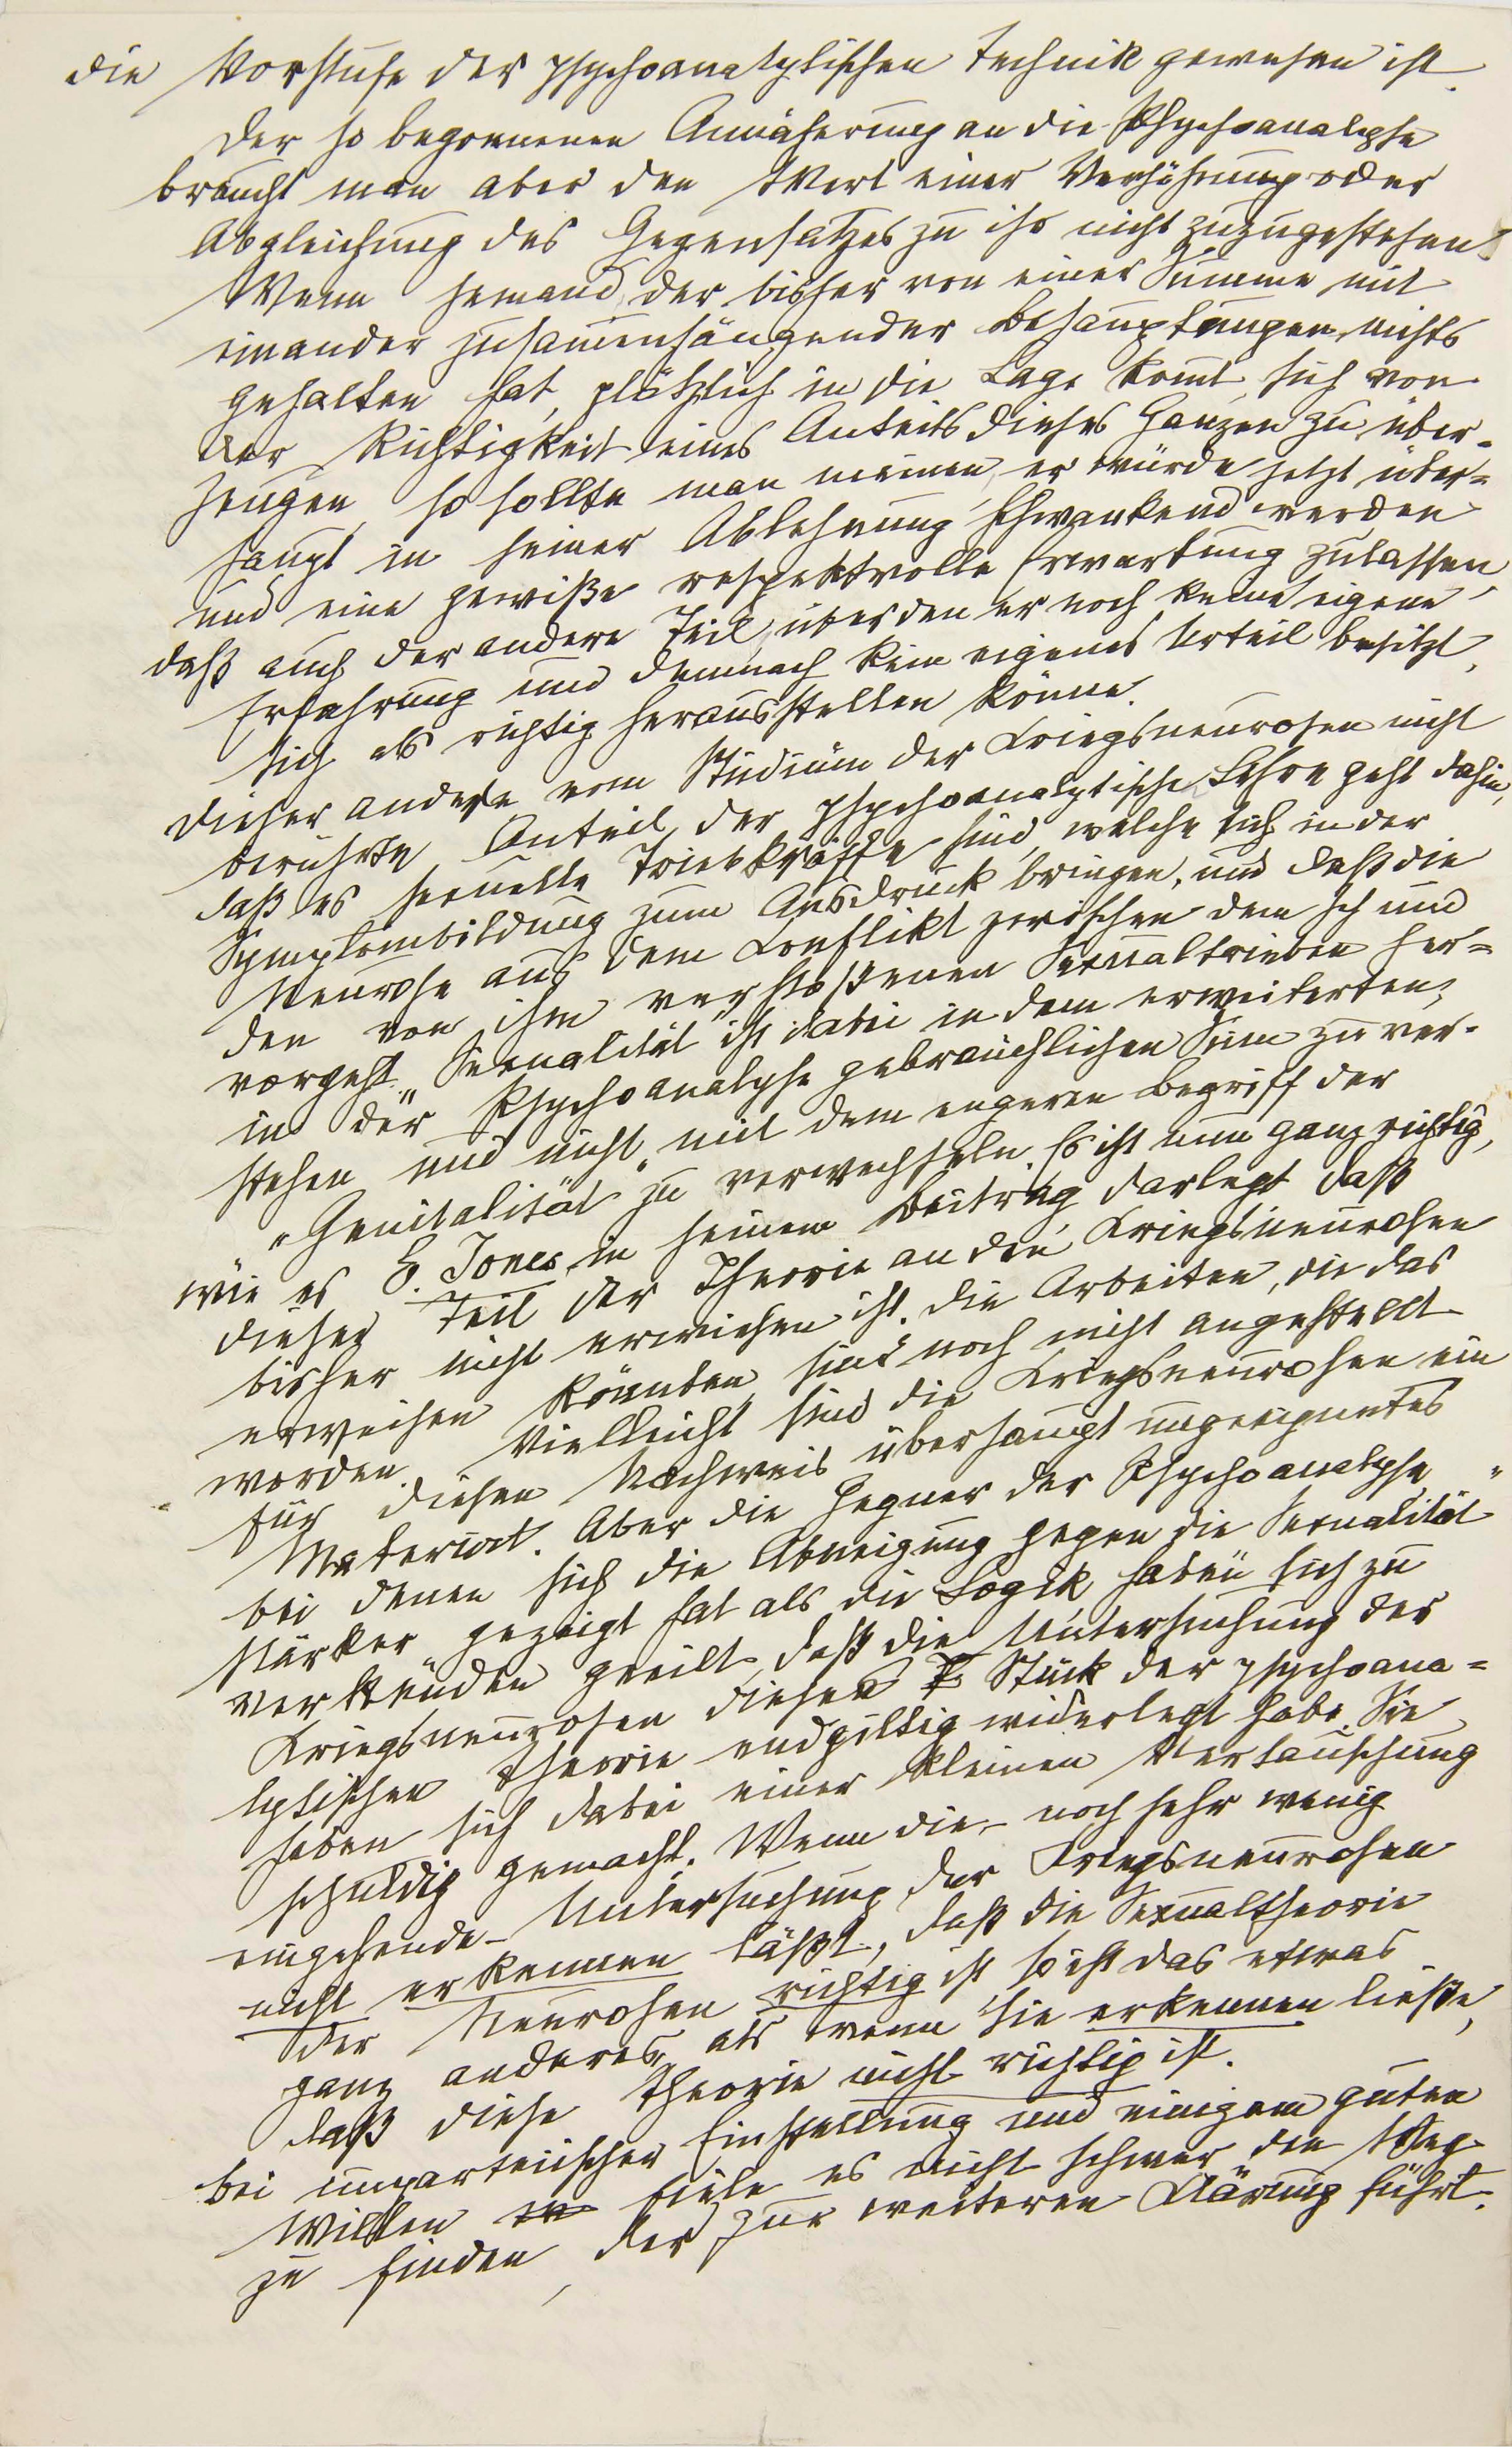 die Vorstufe der psychoanalytischen Technik gewesen ist.
Der so begonnenen Annäherung an die Psychoanalyse
braucht man aber den Wert einer Versöhnung oder
Abgleichung des Gegensatzes zu ihr nicht zuzugestehen.
Wenn jemand, der bisher von einer Summe mit
einander zusammenhängender Behauptungen nichts
gehalten hat, plötzlich in die Lage kommt, sich von
der Richtigkeit eines Anteils dieses Ganzen zu über-
zeugen, so sollte man meinen, er würde jetzt über-
haupt in seiner Ablehnung schwankend werden
und eine gewiße respektvolle Erwartung zulassen,
daß auch der andere Teil, über den er noch keine eigene
Erfahrung und demnach kein eigenes Urteil besitzt,
sich als richtig herausstellen könne.
Dieser andere vom Studium der Kriegsneurosen nicht
berührte Anteil der psychoanalytischen Lehre geht dahin,
daß es sexuelle Triebkräfte sind, welche sich in der
Symptombildung zum Ausdruck bringen, und daß die
Neurose aus dem Konflikt zwischen dem Ich und
den von ihm verstoßenen Sexualtrieben her-
vorgeht. „Sexualität" ist dabei in dem erweiterten,
in der Psychoanalyse gebräuchlichen Sinn zu ver-
stehen und nicht mit dem engeren Begriff der
„Genitalität" zu verwechseln. Es ist nun ganz richtig,
wie es E. Jones in seinem Beitrag darlegt, daß
dieser Teil der Theorie an den Kriegsneurosen
bisher nicht erwiesen ist. Die Arbeiten, die das
erweisen könnten, sind noch nicht angestellt
worden. Vielleicht sind die Kriegsneurosen ein
für diesen Nachweis überhaupt ungeeignetes
Material. Aber die Gegner der Psychoanalyse,
bei denen sich die Abneigung gegen die Sexualität
stärker gezeigt hat als die Logik, haben sich zu
verkünden geeilt, daß die Untersuchung der
Kriegsneurosen dieses T Stück der psychoana-
lytischen Theorie endgiltig widerlegt habe. Sie
haben sich dabei einer kleinen Vertauschung
schuldig gemacht. Wenn die – noch sehr wenig
eingehende – Untersuchung der Kriegsneurosen
nicht erkennen läßt, daß die Sexualtheorie
der Neurosen richtig ist, so ist das etwas
ganz anderes, als wenn sie erkennen ließe,
daß diese Theorie nicht richtig ist.
Bei unparteiischer Einstellung und einigem guten
Willen fiele es nicht schwer, den Weg
zu finden, der zur weiteren Klärung führt.